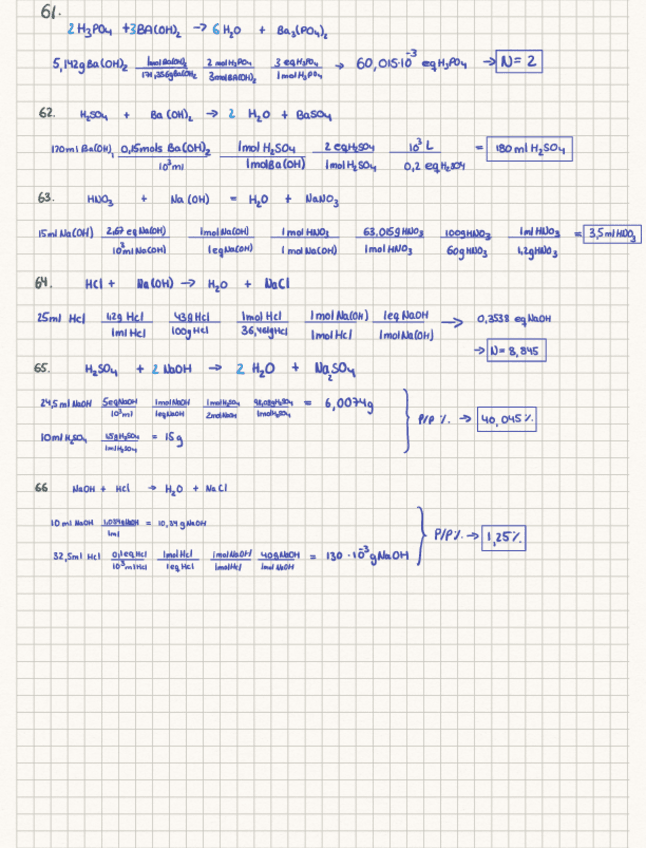 61.
2 H₃PO₄ + 3BA(OH)₂ → 6 H₂O + Ba₃(PO₄)₂
5,142g Ba(OH)₂ 1mol Ba(OH)₂/171,356g Ba(OH)₂ 2 mol H₃PO₄/3mol BA(OH)₂ 3 eq H₃PO₄/1mol H₃PO₄ → 60,015·10⁻³ eq H₃PO₄ → N = 2
62. H₂SO₄ + Ba (OH)₂ → 2 H₂O + BaSO₄
170ml Ba(OH)₂ 0,15mols Ba(OH)₂/10³ml 1mol H₂SO₄/1mol Ba(OH) 2 eq H₂SO₄/1mol H₂SO₄ 10³ L/0,2 eq H₂SO₄ = 180 ml H₂SO₄
63. HNO₃ + Na (OH) = H₂O + NaNO₃
15ml Na(OH) 2,67 eq Na(OH)/10³ml Na(OH) 1mol Na(OH)/1eq Na(OH) 1 mol HNO₃/1 mol Na(OH) 63,015g HNO₃/1mol HNO₃ 100g HNO₃/60g HNO₃ 1ml HNO₃/1,2g HNO₃ = 3,5ml HNO₃
64. HCl + Na(OH) → H₂O + NaCl
25ml Hcl 1,2g Hcl/1ml Hcl 43g Hcl/100g HCl 1mol Hcl/36,461g Hcl 1mol Na(OH)/1mol Hcl 1eq NaOH/1mol Na(OH) → 0,3538 eq NaOH
→ N = 8,845
65. H₂SO₄ + 2 NaOH → 2 H₂O + Na₂SO₄
24,5 ml NaOH 5eq NaOH/10³ml 1mol NaOH/1eq NaOH 1mol H₂SO₄/2mol NaOH 98,08g H₂SO₄/1mol H₂SO₄ = 6,0074g
P/P %. → 40,045%
10ml H₂SO₄ 1,5g H₂SO₄/1ml H₂SO₄ = 15 g
66 NaOH + Hcl → H₂O + NaCl
10 ml NaOH 1,034g NaOH/1ml = 10,34 g NaOH
P/P % → 1,25%
32,5ml Hcl 0,1eq Hcl/10³ml Hcl 1mol Hcl/1eq Hcl 1mol NaOH/1mol Hcl 40g NaOH/1mol NaOH = 130 · 10⁻³ g NaOH